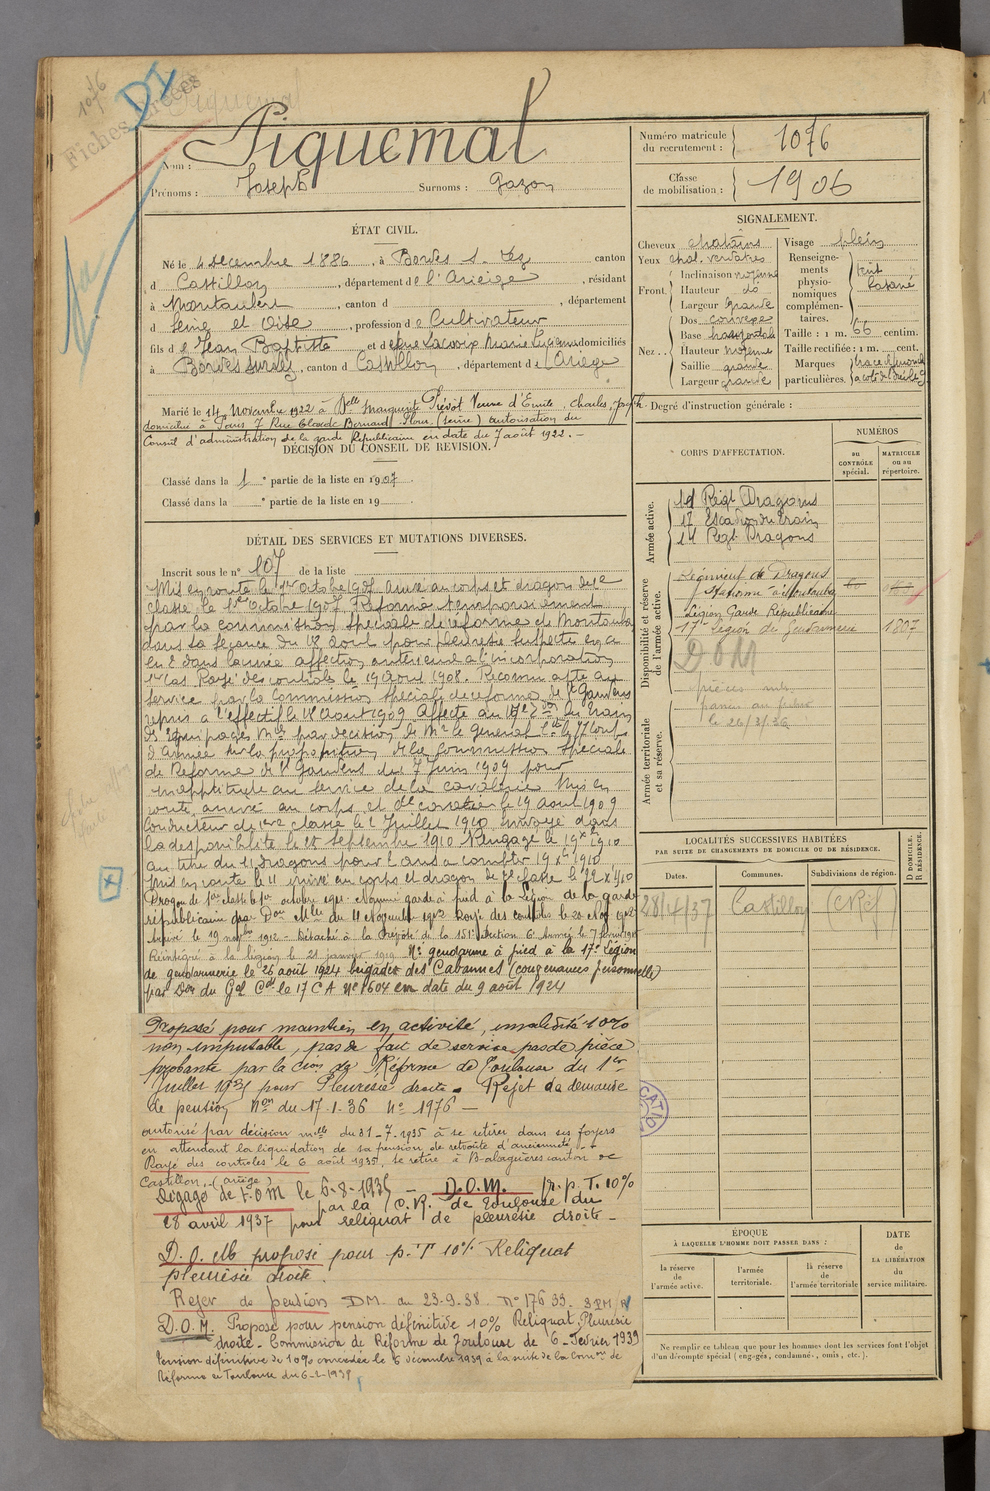 1076
DI
Fiches
Piquemal
Nom : Piquemal
Prénoms : Joseph Surnoms : Gazon
Numéro matricule du recrutement : 1076
Classe de mobilisation : 1906
ÉTAT CIVIL.
Né le 4 décembre 1886, à Bordes s. Lez canton
d Castillon, département de l'Ariège, résidant
à Montaubert, canton d , département
d Seine et Oise, profession de Cultivateur
fils de Jean Baptiste et de domiciliés
à Bordes sur Lez, canton d Castillon, département de l'Ariège
Marié le 14 Novembre 1922 à Delle Marguerite Prévot Veuve d'Emile, Charles, Joseph
domiciliée à Paris 7 Rue Claude Bernard (Seine) autorisation du
Conseil d'administration de la garde Républicaine en date du 7 août 1922. -
DÉCISION DU CONSEIL DE REVISION.
Classé dans la 1 e partie de la liste en 1907
Classé dans la e partie de la liste en 19
DÉTAIL DES SERVICES ET MUTATIONS DIVERSES.
Inscrit sous le n° 107 de la liste
Mis en route le 1er octobre 1907 arrivé au corps et dragon de 2e
classe le 1er octobre 1907. Réformé temporairement
par la commission spéciale de réforme de Montauban
dans sa séance du 18 août pour pleurésie suspecte
affection antérieure à l'incorporation
1er cas Rayé des contrôles le 19 août 1908. Reconnu apte au
service par la Commission spéciale de réforme de St Gaudens
repris à l'effectif le 18 août 1909 Affecté au 17e Eon du train
des Equipages Mres par décision de Mr le Général Ct le 17e Corps
d'Armée sur la proposition de la Commission spéciale
de Réforme de St Gaudens du 7 Juin 1909 pour
inaptitude au service de la cavalerie Mis en
route, arrivé au corps et 2e cavalier le 19 août 1909
Conducteur de 1ère classe le 1 Juillet 1910 envoyé dans
la disponibilité le 25 septembre 1910 Rengagé le 19 Xbre 1910
au titre du 11 dragons pour 2 ans à compter 19 Xbre 1910
mis en route le 11 arrivé au corps et dragon de 2e classe le 22 X 1910
Dragon de 1re classe le 1er octobre 1911 - Nommé garde à pied à la Légion de la garde
républicaine par Don Mlle du 11 Novembre 1912 Rayé des contrôles le 20 Nov 1912
Arrivé le 19 novbre 1912 - Détaché à la Prévôté de la 151e division 6e Armée le 7 février
Réintégré à la légion le 21 janvier 1919 Né gendarme à pied à la 17e Légion
de gendarmerie le 26 août 1924 brigade des Cabannes (convenances personnelles)
par Don du Gal Cdt le 17 C A No 1604 en date du 9 août 1924
Proposé pour maintien en activité, invalidité 10%
non imputable, pas de fait de service pas de pièce
probante par la Cion de Réforme de Toulouse du 1er
Juillet 1935 pour Pleurésie droite. Rejet de demande
de pension Non du 17-1-36 No 1976 -
autorisé par décision mlle du 31-7-1935 à se retirer dans ses foyers
en attendant la liquidation de sa pension de retraite d'ancienneté -
Rayé des contrôles le 6 août 1935, se retire à Balaguères canton de
Castillon. (ariège)
Dégagé de l'O M le 6-8-1935 - D.O.M. p. p. T. 10%
par la C.R. de Toulouse du
28 avril 1937 pour reliquat de pleurésie droite -
D. O. M proposé pour p. T 10% Reliquat
pleurésie droite.
Rejet de pension DM. du 23-9-38. No 17633.
D.O.M. Proposé pour pension définitive 10% Reliquat Pleurésie
droite - Commission de Réforme de Toulouse de 6 - Février 1939
Pension définitive de 10% concédée le 6 décembre 1939 à la suite de la Comon de
Réforme de Toulouse du 6-2-1939
SIGNALEMENT.
Cheveux chatains
Yeux chat. verdâtres
Front. Inclinaison moyenne
Hauteur do
Largeur grande
Nez. Dos convexe
Base horizontale
Hauteur moyenne
Saillie grande
Largeur grande
Visage plein
Renseignements physionomiques complémentaires. teint basané
Taille : 1 m. 66 centim.
Taille rectifiée : 1 m. cent.
Marques particulières.
Degré d'instruction générale :
CORPS D'AFFECTATION.
NUMÉROS
au CONTRÔLE spécial.
MATRICULE ou au répertoire.
Armée active.
10 Régt Dragons
17 Escadron du Train
11 Regt. Dragons
Disponibilité et réserve de l'armée active.
Régiment de Dragons
stationné à Montauban
Légion Garde Républicaine
17e Légion de Gendarmerie 1807
DOM
pièces
le 26/3/36
Armée territoriale et sa réserve.
LOCALITÉS SUCCESSIVES HABITÉES
PAR SUITE DE CHANGEMENTS DE DOMICILE OU DE RÉSIDENCE.
Dates. Communes. Subdivisions de région. D DOMICILE. R RÉSIDENCE.
28/4/37 Castillon
ÉPOQUE
À LAQUELLE L'HOMME DOIT PASSER DANS :
la réserve de l'armée active.
l'armée territoriale.
la réserve de l'armée territoriale
DATE de LA LIBÉRATION du service militaire.
Ne remplir ce tableau que pour les hommes dont les services font l'objet
d'un décompte spécial (engagés, condamnés, omis, etc.).